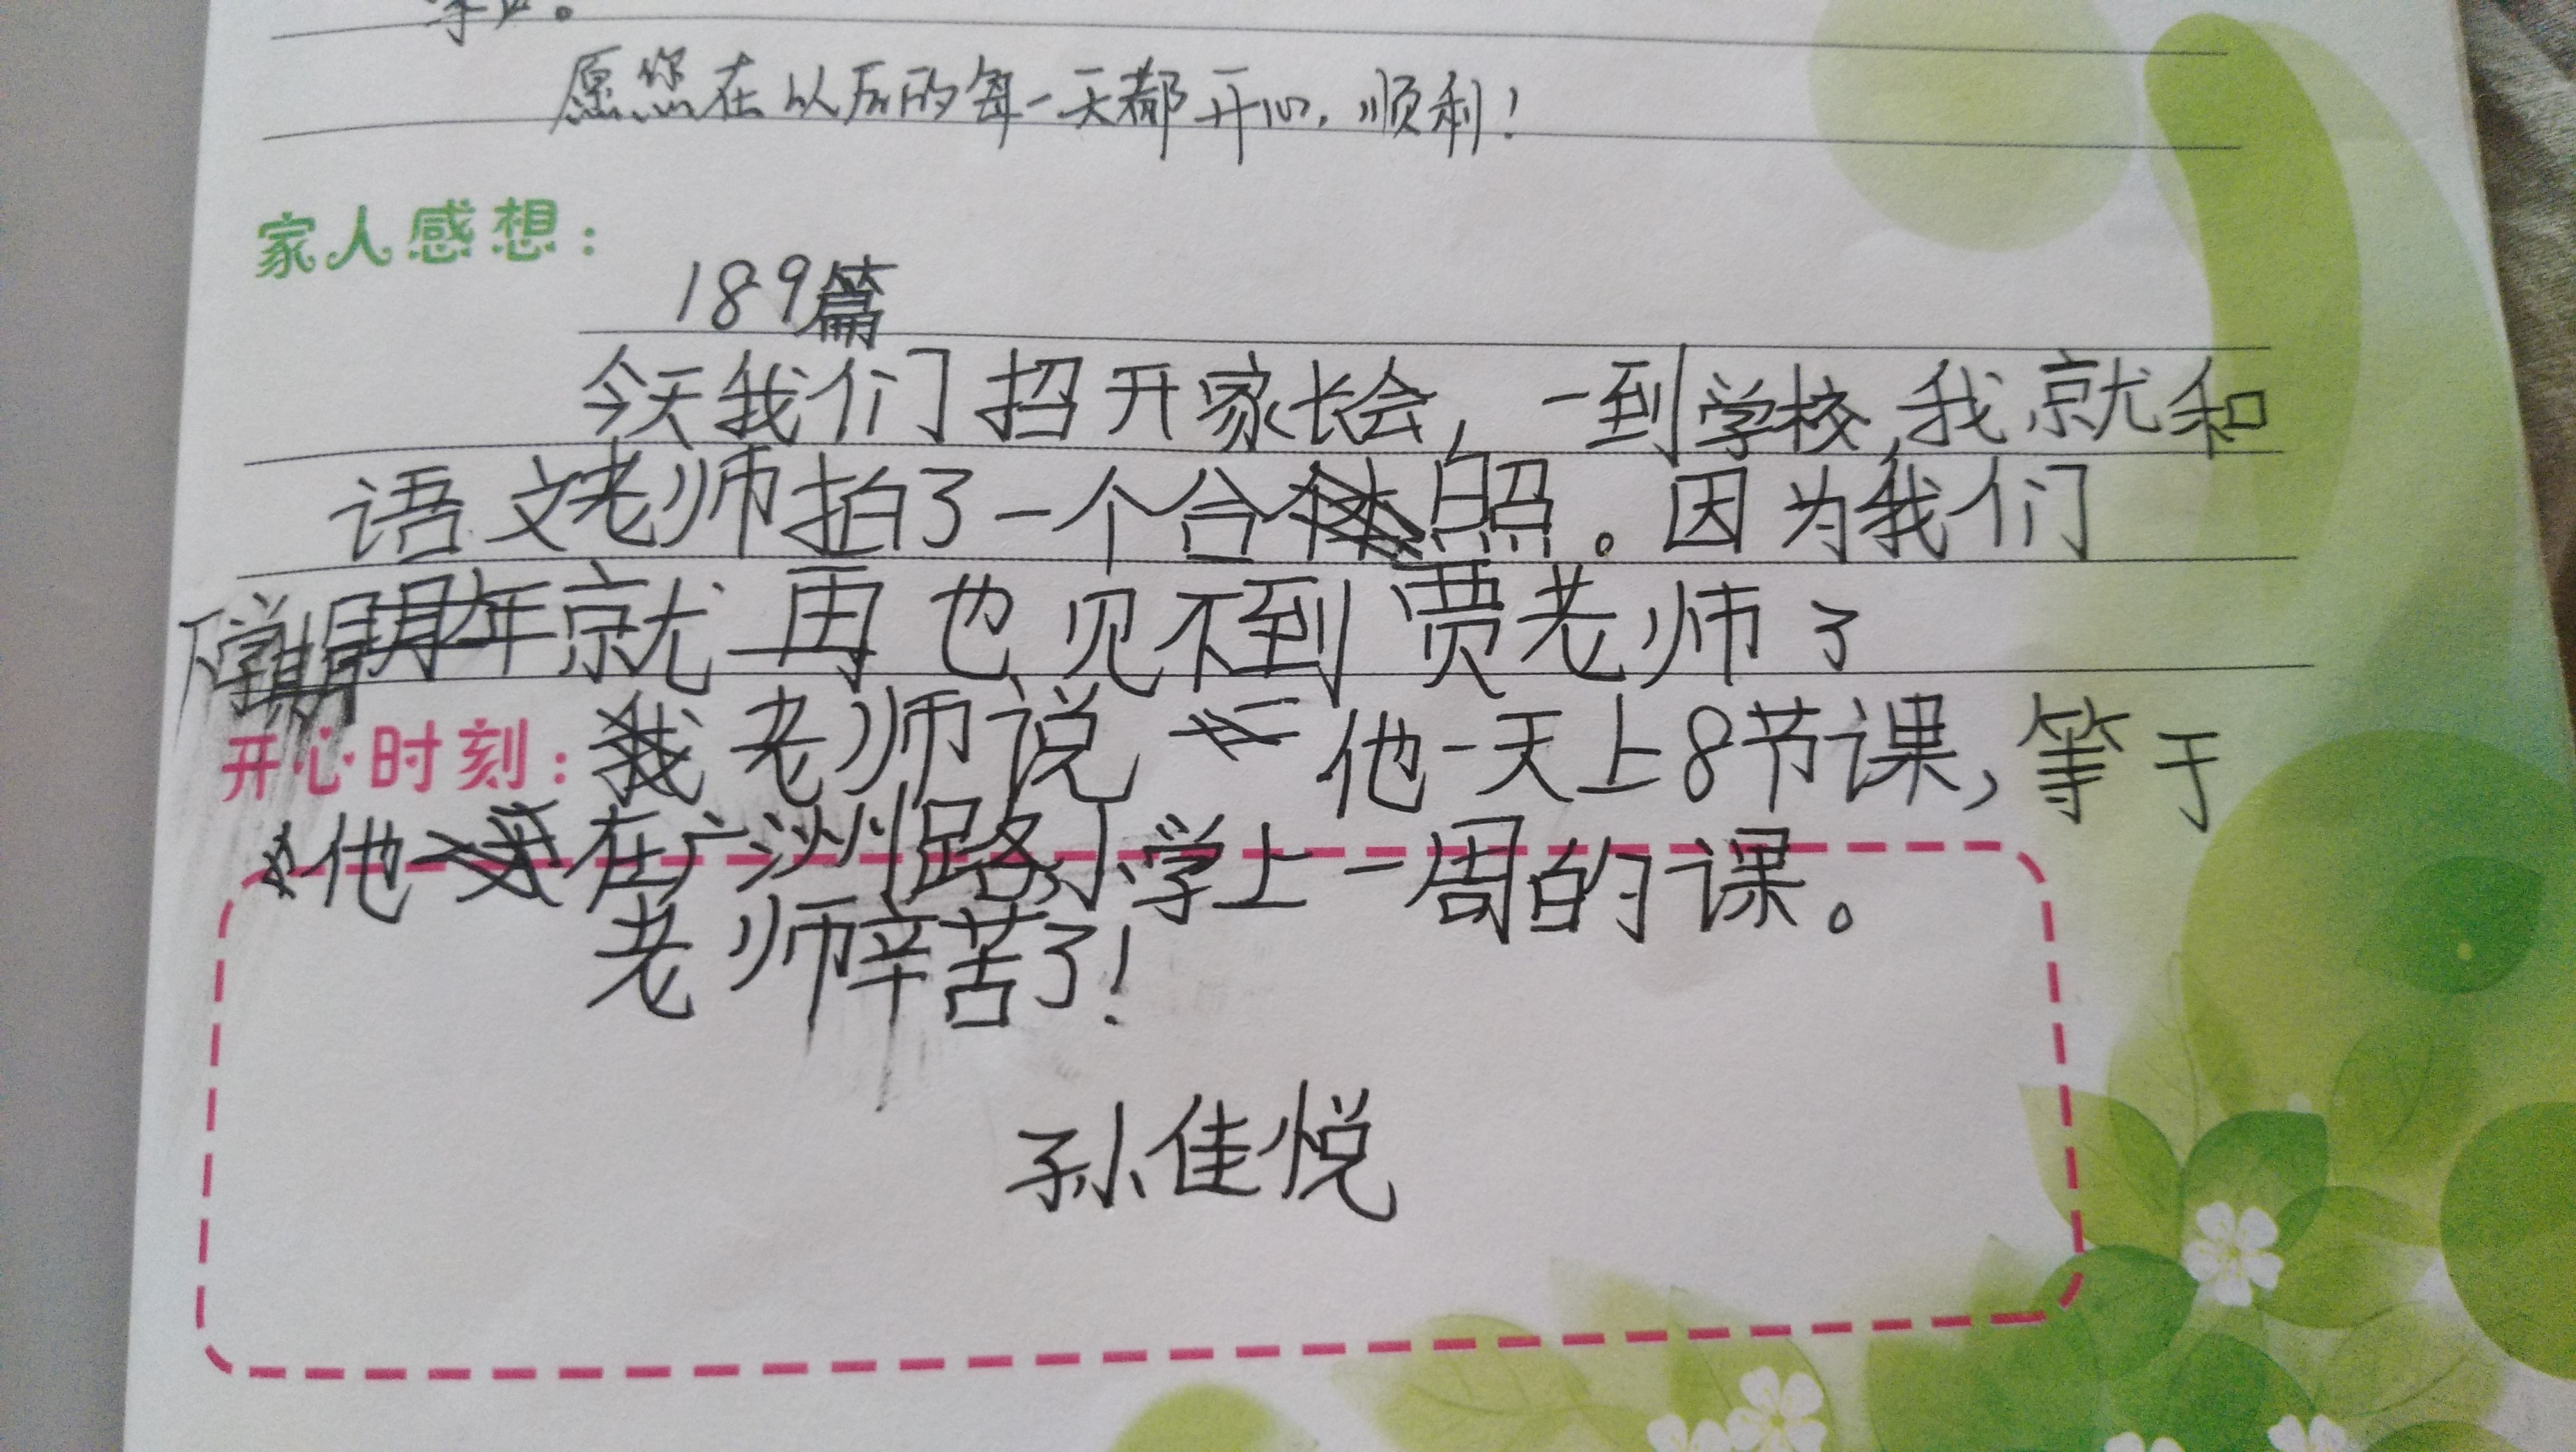 愿您在以后的每一天都开心，顺利！
家人感想：
189篇
今天我们招开家长会，一到学校，我就和
语文老师拍了一个合照。因为我们
下学期就再也见不到贾老师了
开心时刻：老师说他一天上8节课，等于
他在广洲路小学上一周的课。
老师辛苦了！
孙佳悦